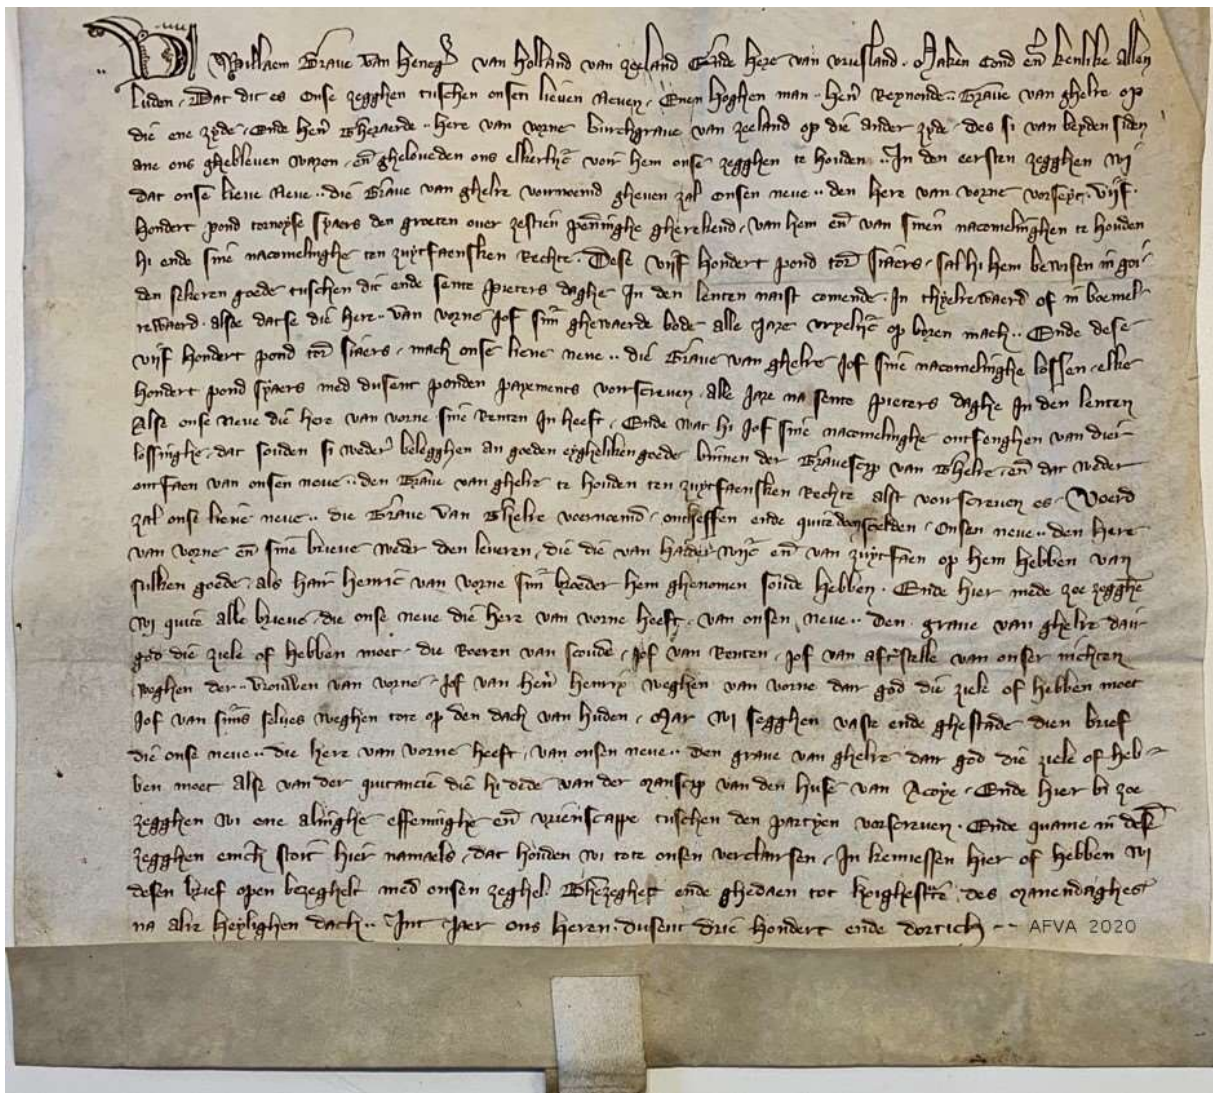 Wi Willaem Grave van Heneg̃ van Holland van zeeland Ende here van vriesland. Maken cond en̄ kenlike allen
luden. Dat dit es onse zegghen tusschen onsen lieven Neven. Enen hoghen man .. hern̄ Reynoude .. Grave van ghelre op
die ene zyde. Ende hern̄ Gheraerde .. here van vorne burchgrave van zeeland op die ander zyde. des si van beyden siden
ane ons ghebleven waron. en̄ gheloueden ons elkerlijc̄ voir hem onse zegghen te houden .. In den eersten zegghen wi
dat onse lieve Neve .. die Grave van ghelre vornoemd gheven zal onsen neve .. den here van vorne vorseyt. vijf.
hondert pond tornoyse sjaers den groten over zestien pen̄inghe gherekend. van hem en̄ van sinen nacomelinghen te houden
hi ende sine nacomelinghe ten zuytfaenschen Rechte. Dese vijf hondert pond tor̄ siaers. sal hi hem bewisen in goi
den sekeren goede tusschen dit ende sente pieters daghe In den lenten naist comende. In thyelrewaerd of in boemel
rewaerd. alse datse die here .. van vorne Jof sijn̄ ghewaerde bode alle Jare vryelijc̄ op boren mach .. Ende dese
vijf hondert pond tor̄ siaers. mach onse lieve neve .. die Grave van ghelre Jof sine nacomelinghe lossen. elke
hondert pond sjaers med dusent ponden payements vorscreven. alle Jare na sente pieters daghe In den lenten
Alse onse neve die here van vorne sine Renten In heeft. Ende wat hi Jof sine nacomelinghe ontfenghen van dier
lossinghe. dat souden si weder̄ belegghen an goeden eyghelikengoede binnen der Gravescap van Ghelre. en̄ dat weder
ontfaen van onsen neve .. den Grave van ghelre te houden ten zuytfaenschen Rechte alst vorscreven es. Voerd
zal onse lieve neve .. die Grave van Ghelre voernoemd. ontheffen ende quite Onsen neve .. den here
van vorne en̄ sine brieve weder den leveren. die die van harderwijc̄ en̄ van zuytfaen op hem hebben van
sulken goede. als hair henric van vorne sijn̄ broeder hem ghenomen soude hebben. Ende hier mede zoe zegghē
wi quite alle brieve. die onse neve die here van vorne heeft. van onsen neve .. Den grave van ghelre dair
god die ziele of hebben moet. die Roeren van scoude. Jof van Renten. Jof van van onser nichten
weghen der .. vrouwen van vorne. Jof van hern̄ henrix weghen van vorne dair god die ziele of hebben moet
Jof van sijns selves weghen tote op den dach van huden. Mar wi segghen vaste ende ghestade dien brief
die onse neve .. die here van vorne heeft. van onsen neve .. Den grave van ghelre dair god die ziele of heb
ben moet alse van der quitancie die hi dede van der manscap van den huse van Acoye. Ende hier bi zoe
zegghen wi ene alinghe effeninghe en̄ vrienscappe tusschen den partyen vorscreven. Ende quame in desē
zegghen enich stoit hier namaels. dat houden wi tote onsen verclairsen. In kennessen hier of hebben wi
desen brief open bezeghelt med onsen zeghel. Ghezeghet ende ghedaen tot des manendaghes
na alre heylighen dach .. Int Jaer ons heren. dusent drie hondert ende dortich
AFVA 2020